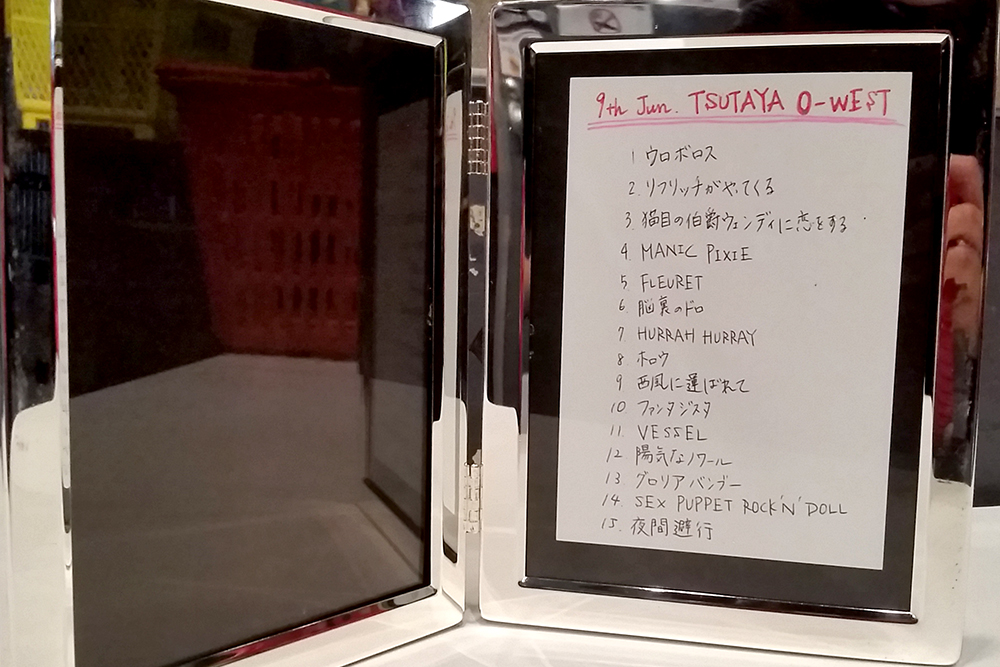 9th Jun. TSUTAYA O-WEST
1 ウロボロス
2. リフリッチがやってくる
3. 猫目の伯爵ウェンディに恋をする
4. MANIC PIXIE
5 FLEURET
6 脳裏のドロ
7 HURRAH HURRAY
8 ホロウ
9 西風に運ばれて
10 ファンタジスタ
11. VESSEL
12 陽気なノワール
13 グロリアバンブー
14. SEX PUPPET ROCK'N'DOLL
15. 夜間避行